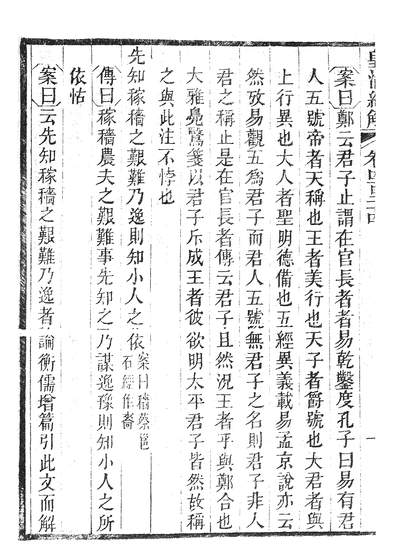 皇清經解 卷四百二十四 一
案曰鄭云君子止謂在官長者者易乾鑿度孔子曰易有君
人五號帝者天稱也王者美行也天子者爵號也大君者與
上行異也大人者聖明德備也五經異義載易孟京說亦云
然攷易觀五爲君子而君人五號無君子之名則君子非人
君之稱止是在官長者傳云君子且然況王者乎與鄭合也
大雅鳧鷖箋以君子斥成王者彼欲明太平君子皆然故稱
之與此注不悖也
先知稼穡之艱難乃逸則知小人之依 案曰穡蔡邕石經作嗇
傳曰稼穡農夫之艱難事先知之乃謀逸豫則知小人之所
依怙
案曰云先知稼穡之艱難乃逸者論衡儒增篇引此文而解